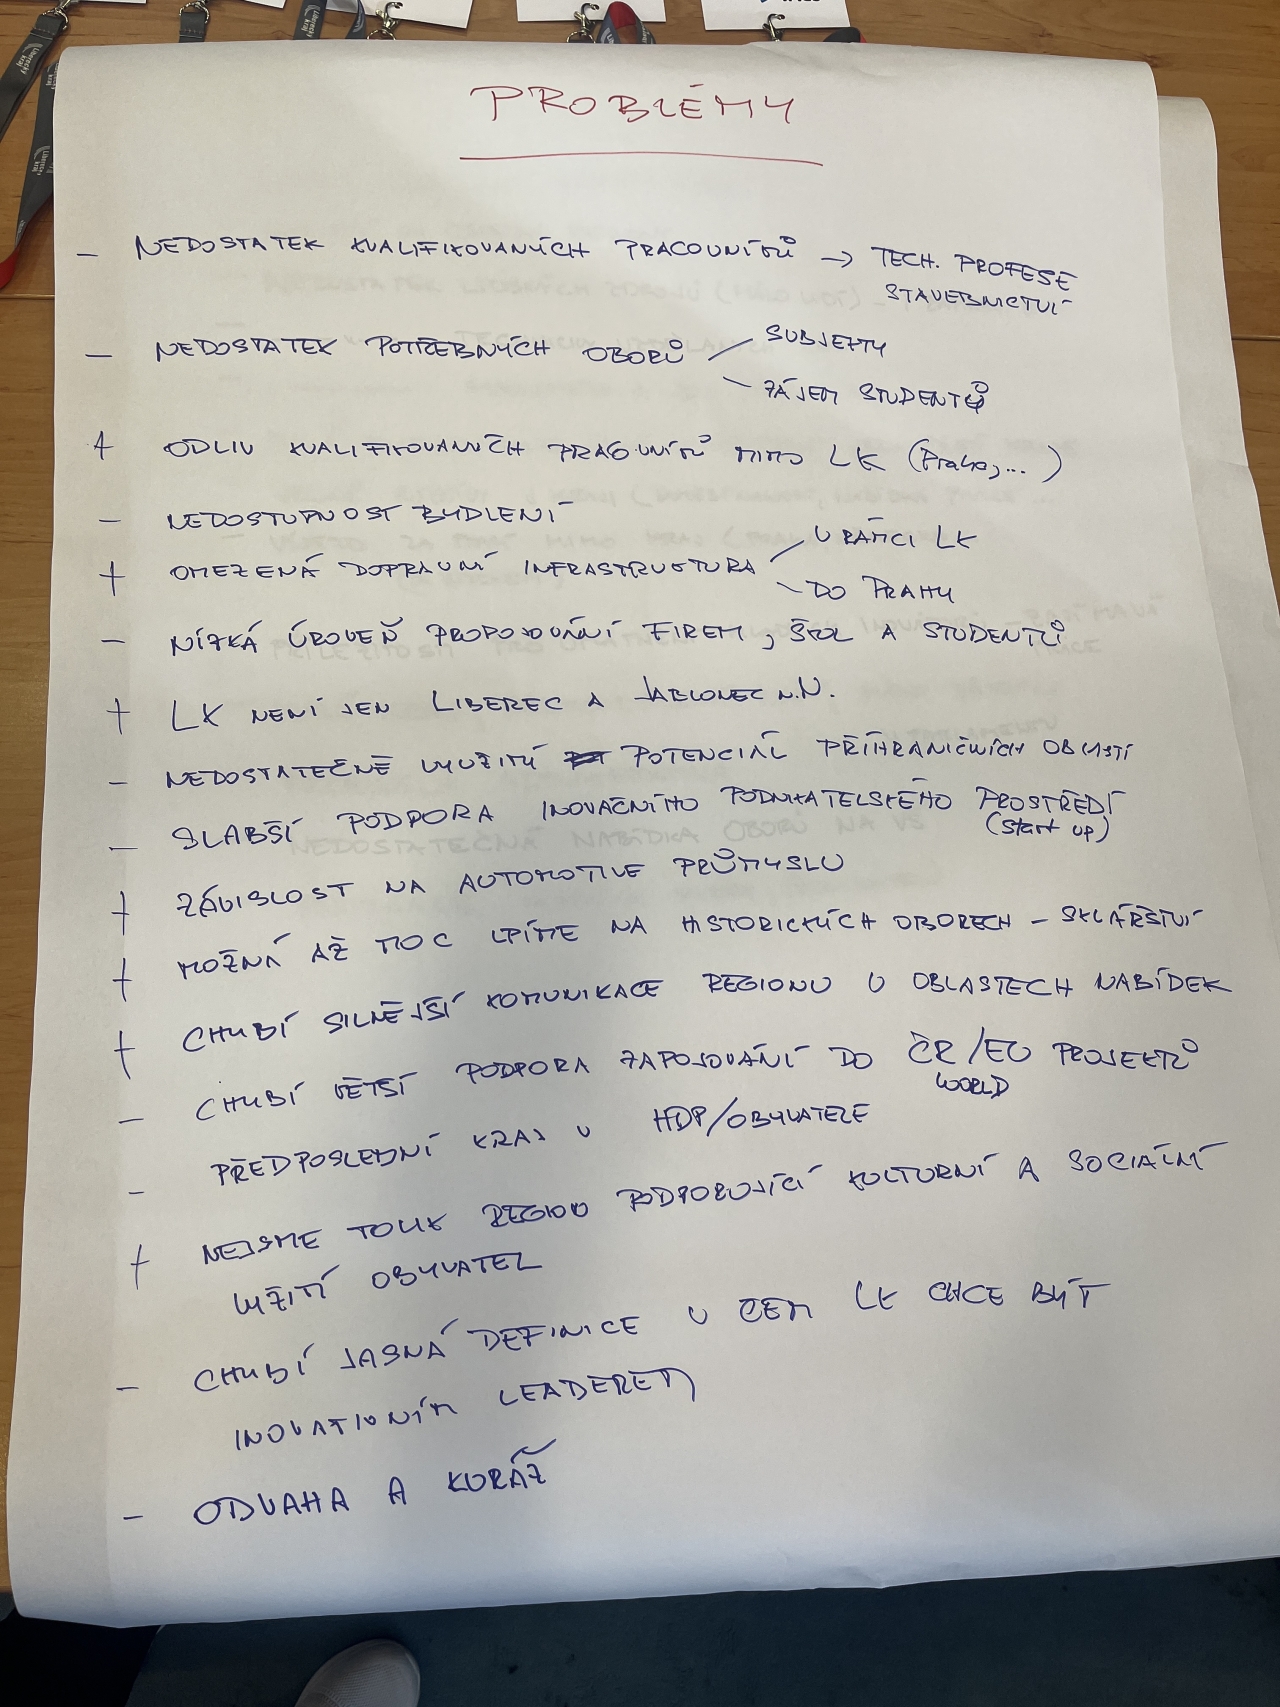 PROBLÉMY
- NEDOSTATEK KVALIFIKOVANÝCH PRACOVNÍKŮ → TECH. PROFESE
STAVEBNICTVÍ
- NEDOSTATEK POTŘEBNÝCH OBORŮ / SUBJEKTY
\ ZÁJEM STUDENTŮ
+ ODLIV KVALIFIKOVANÝCH PRACOVNÍKŮ MIMO LK (Praha, ...)
- NEDOSTUPNOST BYDLENÍ
+ OMEZENÁ DOPRAVNÍ INFRASTRUKTURA / V RÁMCI LK
\ DO PRAHY
- NÍZKÁ ÚROVEŇ PROPOJOVÁNÍ FIREM, ŠKOL A STUDENTŮ
+ LK NENÍ JEN LIBEREC A JABLONEC N.N.
- NEDOSTATEČNĚ VYUŽITÝ POTENCIÁL PŘÍHRANIČNÍCH OBLASTÍ
- SLABŠÍ PODPORA INOVAČNÍHO PODNIKATELSKÉHO PROSTŘEDÍ
(Start up)
+ ZÁVISLOST NA AUTOMOTIVE PRŮMYSLU
+ MOŽNÁ AŽ MOC LPÍME NA HISTORICKÝCH OBORECH - SKLÁŘSTVÍ
+ CHYBÍ SILNĚJŠÍ KOMUNIKACE REGIONU V OBLASTECH NABÍDEK
- CHYBÍ VĚTŠÍ PODPORA ZAPOJOVÁNÍ DO ČR/EU PROJEKTŮ
WORLD
- PŘEDPOSLEDNÍ KRAJ V HDP/OBYVATELE
+ NEJSME TOLIK REGION PODPORUJÍCÍ KULTURNÍ A SOCIÁLNÍ
VYŽITÍ OBYVATEL
- CHYBÍ JASNÁ DEFINICE V ČEM LK CHCE BÝT
INOVATIVNÍM LEADEREM
- ODVAHA A KURÁŽ